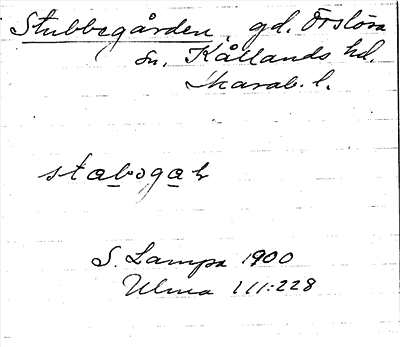 Stubbegården, gd. Örslösa
sn. Kållands hd.
Skarab. l.
stabogaḷ
S. Lampa 1900
Ulma 111:228